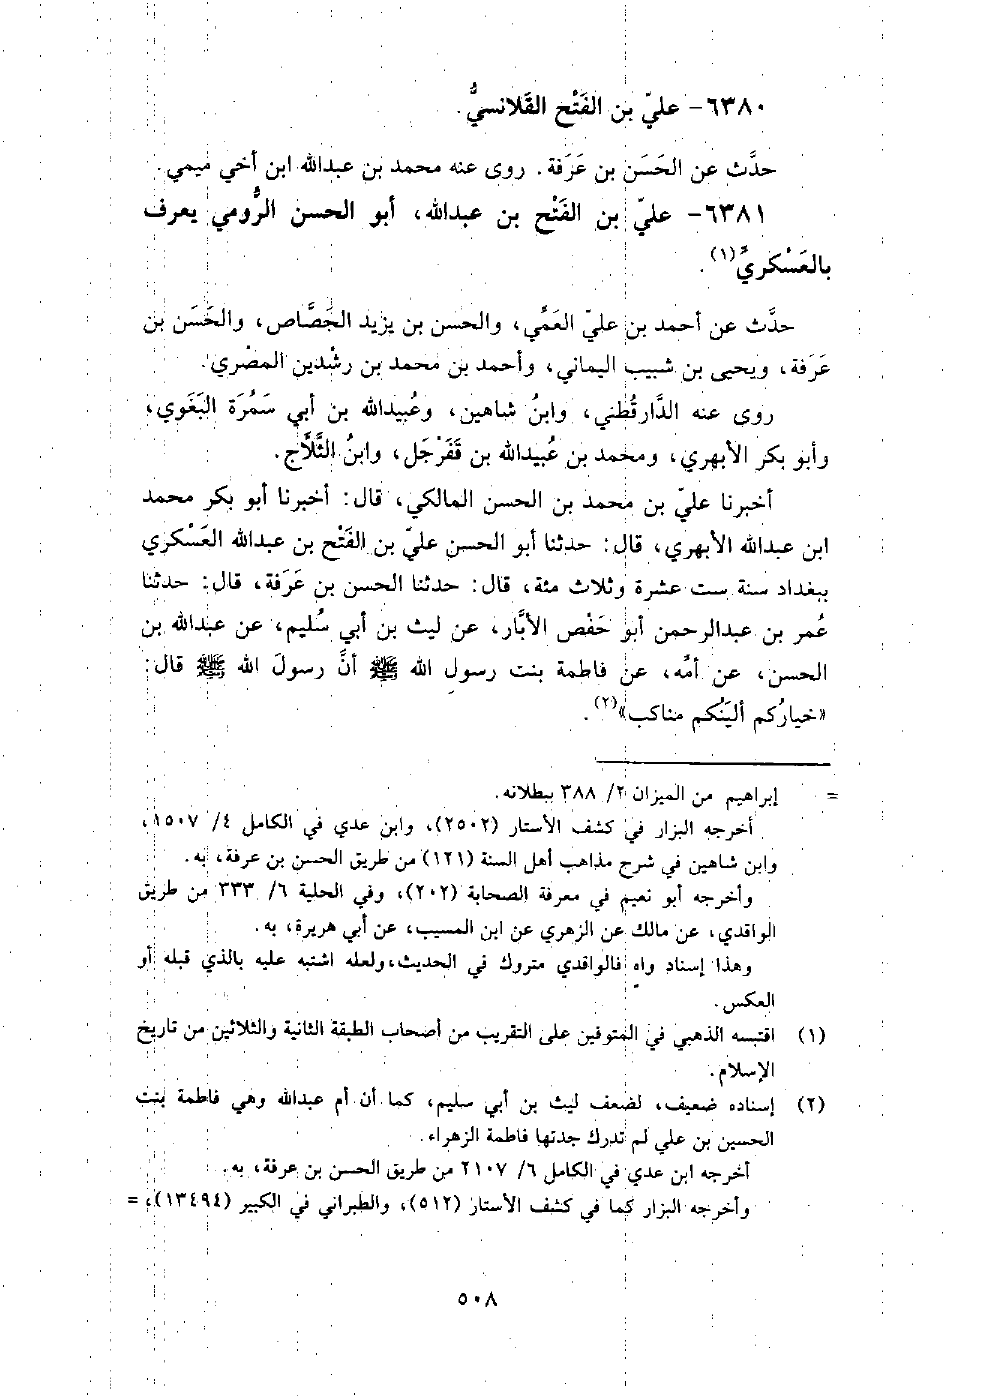 ٦٣٨٠- عليّ بن الفَتْح القَلانسيُّ.
حدَّث عن الحَسَن بن عَرَفة. روى عنه محمد بن عبدالله ابن أخي ميمي.
٦٣٨١- عليّ بن الفَتْح بن عبدالله، أبو الحسن الرُّومي يعرف
بالعَسْكريِّ(١).
حدَّث عن أحمد بن عليّ العَمِّي، والحسن بن يزيد الجَصَّاص، والحَسَن بن
عَرَفة، ويحيى بن شبيب اليماني، وأحمد بن محمد بن رشْدين المصْري.
روى عنه الدَّارقُطني، وابنُ شاهين، وعُبيدالله بن أبي سَمُرَة البَغَوي،
وأبو بكر الأبهري، ومحمد بن عُبيدالله بن قَفَرْجَل، وابنُ الثَّلَّاج.
أخبرنا عليّ بن محمد بن الحسن المالكي، قال: أخبرنا أبو بكر محمد
ابن عبدالله الأبهري، قال: حدثنا أبو الحسن عليّ بن الفَتْح بن عبدالله العَسْكري
ببغداد سنة ست عشرة وثلاث مئة، قال: حدثنا الحسن بن عَرَفة، قال: حدثنا
عُمر بن عبدالرحمن أبو حَفْص الأبَّار، عن ليث بن أبي سُليم، عن عبدالله بن
الحسن، عن أمِّه، عن فاطمة بنت رسول الله ﷺ أنَّ رسولَ الله ﷺ قال:
«خيارُكم أليَنُكم مناكب»(٢).
= إبراهيم من الميزان ٢/ ٣٨٨ ببطلانه.
أخرجه البزار في كشف الأستار (٢٥٠٢)، وابن عدي في الكامل ٤/ ١٥٠٧،
وابن شاهين في شرح مذاهب أهل السنة (١٢١) من طريق الحسن بن عرفة، به.
وأخرجه أبو نعيم في معرفة الصحابة (٢٠٢)، وفي الحلية ٦/ ٣٣٣ من طريق
الواقدي، عن مالك عن الزهري عن ابن المسيب، عن أبي هريرة، به.
وهذا إسناد واهٍ فالواقدي متروك في الحديث، ولعله اشتبه عليه بالذي قبله أو
العكس.
(١) اقتبسه الذهبي في المتوفين على التقريب من أصحاب الطبقة الثانية والثلاثين من تاريخ
الإسلام.
(٢) إسناده ضعيف، لضعف ليث بن أبي سليم، كما أن أم عبدالله وهي فاطمة بنت
الحسين بن علي لم تدرك جدتها فاطمة الزهراء.
أخرجه ابن عدي في الكامل ٦/ ٢١٠٧ من طريق الحسن بن عرفة، به.
وأخرجه البزار كما في كشف الأستار (٥١٢)، والطبراني في الكبير (١٣٤٩٤)، =
٥٠٨